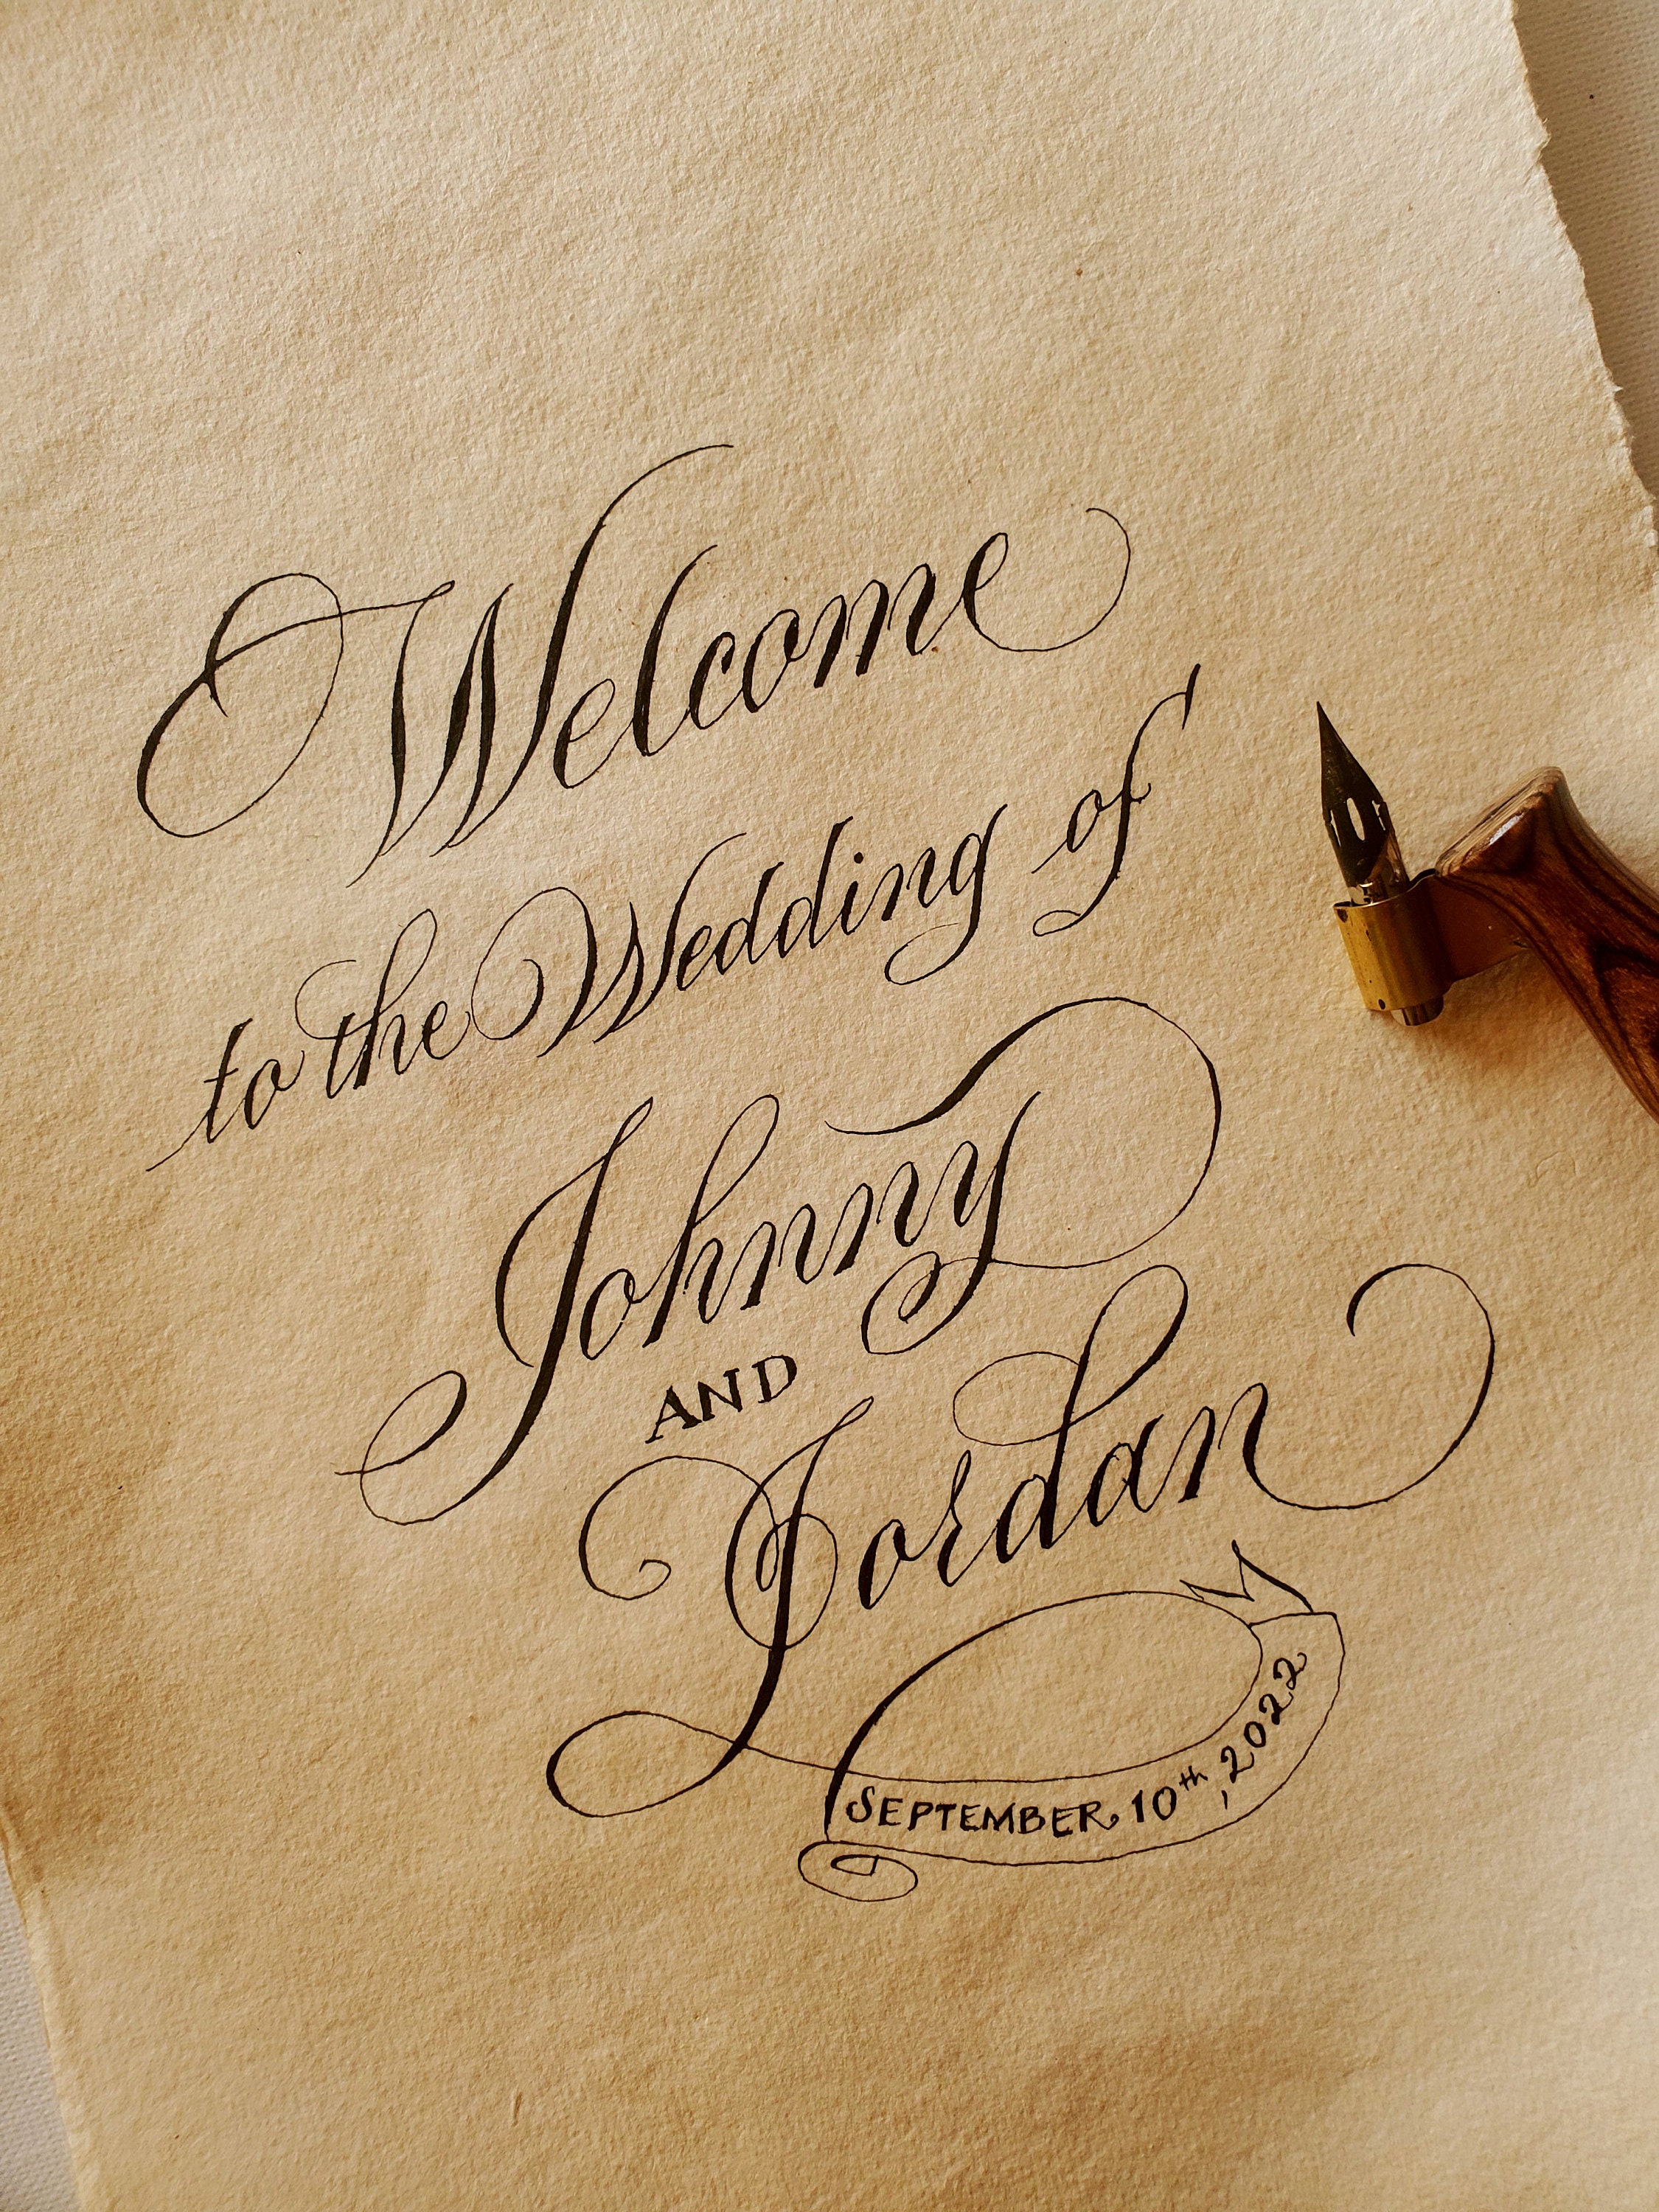 Welcome
to the Wedding of
Johnny
AND
Jordan
SEPTEMBER 10th, 2022